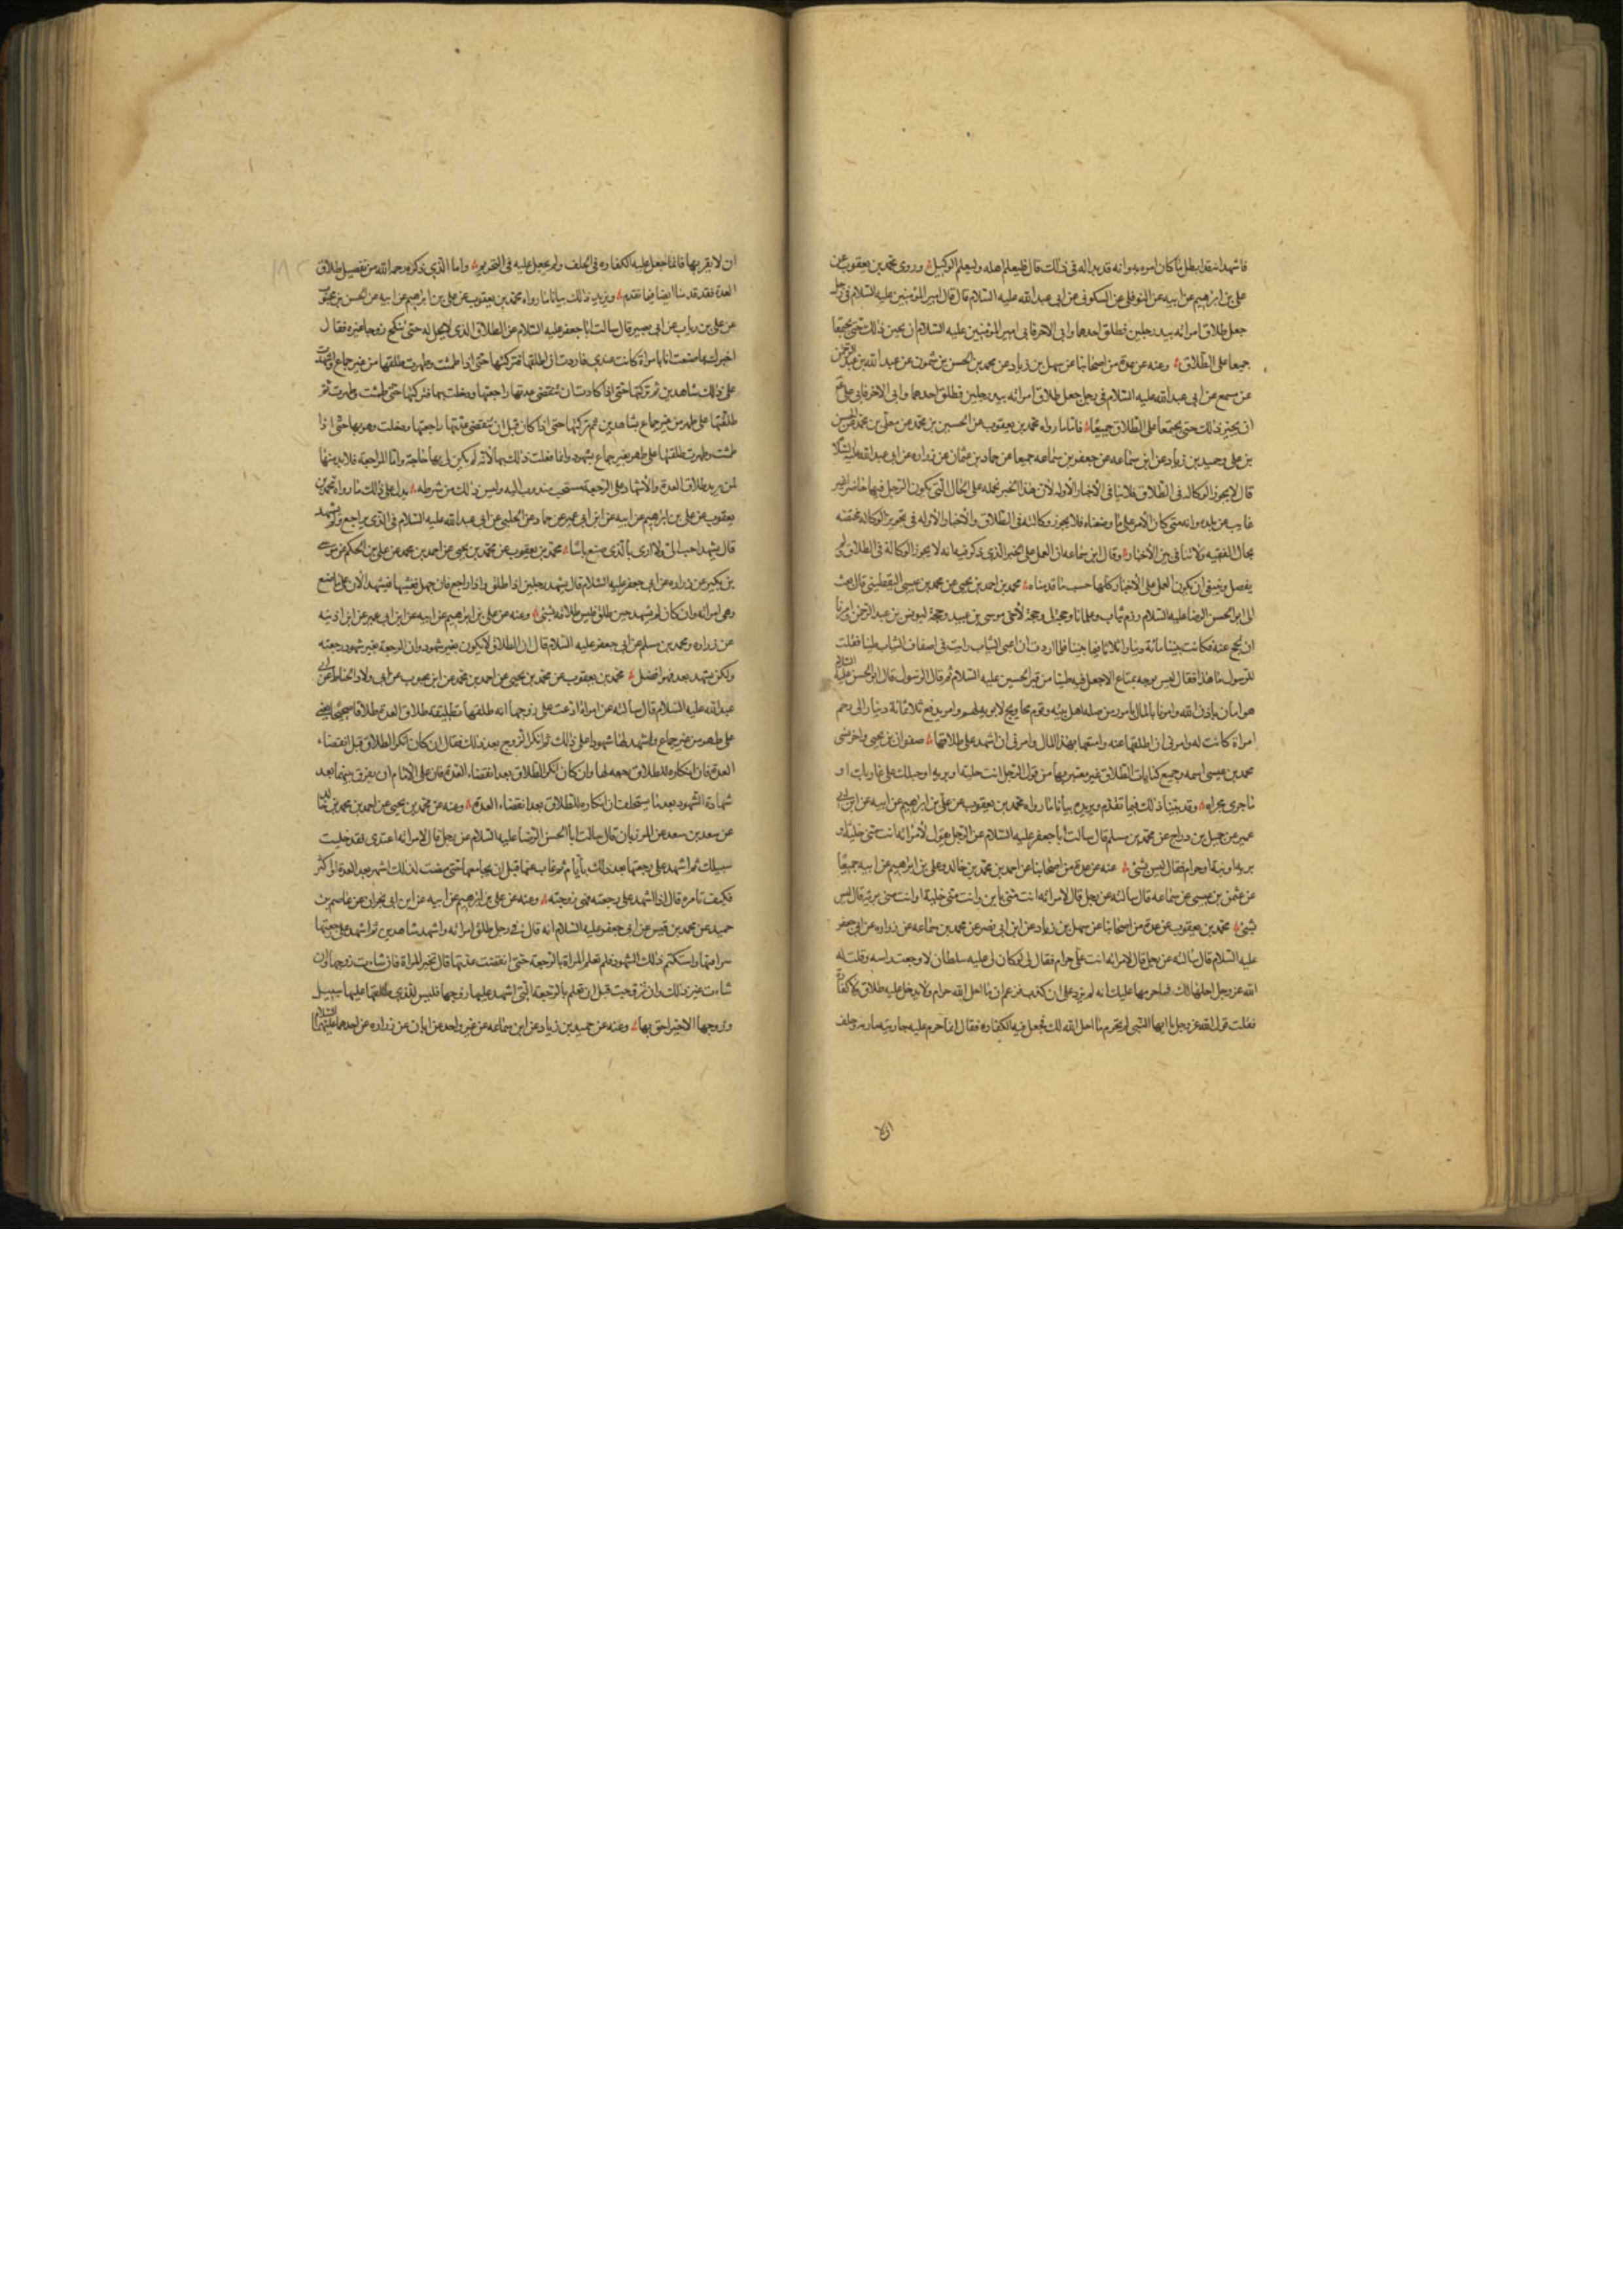 فاشهد انه قد ابطل ما كان امره به وانه قد بدا له فى ذلك قال فليعلم اهله وليعلم الوكيل وروى محمد بن يعقوب عن
على بن ابرهيم عن ابيه عن النوفلى عن السكونى عن ابى عبد الله عليه السلام قال قال امير المؤمنين عليه السلام فى رجل
جعل طلاق امراته بيد رجلين فطلق احدهما وابى الاخر فابى امير المؤمنين عليه السلام ان يجيز ذلك حتى يجتمعا
جميعا على الطلاق وعنه عن عدة من اصحابنا عن سهل بن زياد عن محمد بن الحسن بن شمون عن عبد الله بن عبد الرحمن
عن مسمع عن ابى عبد الله عليه السلام فى رجل جعل طلاق امراته بيد رجلين فطلق احدهما وابى الاخر فابى على ع
ان يجيز ذلك حتى يجتمعا على الطلاق جميعا فاما ما رواه محمد بن يعقوب عن الحسين بن محمد عن معلى بن محمد عن الحسن
بن على وحميد بن زياد عن ابن سماعه عن جعفر بن سماعه جميعا عن حماد بن عثمان عن زراره عن ابى عبد الله عليه السلام
قال لا يجوز الوكاله فى الطلاق فلا ينافى الاخبار الاوله لان هذا الخبر نحمله على الحال التى يكون الرجل فيها حاضرا غير
غايب عن بلده وانه متى كان الامر على ما وصفناه فلا يجوز وكالته فى الطلاق والاخبار الاوله فى تجويز الوكاله مختصه
بحال الغيبه ولا تنافى بين الاخبار وقال ابن سماعه ان العمل على الخبر الذى ذكر فيه انه لا يجوز الوكالة فى الطلاق ولم
يفصل وينبغى ان يكون العمل على الاخبار كلها حسب ما قدمناه محمد بن احمد بن يحيى عن محمد بن عيسى اليقطينى قال بعث
الى ابو الحسن الرضا عليه السلام رزم ثياب وغلمانا وحجة لى وحجة لاخى موسى بن عبيد وحجة ليونس بن عبد الرحمن وامرنا
ان نحج عنه فكانت بيننا مائة دينار اثلاثا فيما بيننا فلما اردت ان اعبى الثياب رايت فى اضعاف الثياب طينا فقلت
للرسول ما هذا فقال ليس يوجه بمتاع الا جعل فيه طينا من قبر الحسين عليه السلام ثم قال الرسول قال ابو الحسن عليه السلام
هو امان باذن الله وامرنا بالمال بامور من صلة اهل بيته وقوم محاويج لا يؤبه لهم وامر بدفع ثلاثمائة دينار الى رحم
امراة كانت له وامرنى ان اطلقها عنه وامتعها بهذا المال وامرنى ان اشهد على طلاقها صفوان بن يحيى واخر نسى
محمد بن عيسى اسمه وجميع كنايات الطلاق غير معتبر بها من قول الرجل انت خلية او بريه او حبلك على غاربك او
ما جرى مجراه وقد بينا ذلك فيما تقدم ويزيده بيانا ما رواه محمد بن يعقوب عن على بن ابراهيم عن ابيه عن ابن ابى
عمير عن جميل بن دراج عن محمد بن مسلم قال سالت ابا جعفر عليه السلام عن الرجل يقول لامراته انت منى خلية او
بريه او بتة او حرام فقال ليس بشئ عنه عن عدة من اصحابنا عن احمد بن محمد بن خالد وعلى بن ابراهيم عن ابيه جميعا
عن عثمن بن عيسى عن سماعه قال سالته عن رجل قال لامراته انت منى باين وانت منى خلية او انت منى برية قال ليس
بشئ محمد بن يعقوب عن عدة من اصحابنا عن سهل بن زياد عن ابن ابى نصر عن محمد بن سماعه عن زراره عن ابى جعفر
عليه السلام قال سالته عن رجل قال لامراته انت على حرام فقال لى لو كان لى عليه سلطان لاوجعت راسه وقلت له
الله عز وجل احلها لك فما حرمها عليك انه لم يزد على ان كذب فزعم ان ما احل الله حرام ولا يدخل عليه طلاق ولا كفارة
فقلت قول الله عز وجل يا ايها النبى لم تحرم ما احل الله لك فجعل فيه الكفاره فقال انما حرم عليه جاريته ماريه وحلف
ان لا
ان لا يقربها فانما جعل عليه الكفاره فى الحلف ولم يجعل عليه فى التحريم واما الذى ذكره رحمه الله من تفصيل طلاق
العدة فقد قدمنا ايضا فيما تقدم ويزيد ذلك بيانا ما رواه محمد بن يعقوب عن على بن ابراهيم عن ابيه عن الحسن بن محبوب
عن على بن رياب عن ابى بصير قال سالت ابا جعفر عليه السلام عن الطلاق الذى لا يحل له حتى تنكح زوجا غيره فقال
اخبرك بما صنعت انا بامراة كانت عندى فاردت ان اطلقها فتركتها حتى اذا طمثت وطهرت طلقتها من غير جماع واشهدت
على ذلك شاهدين ثم تركتها حتى اذا كادت ان تنقضى عدتها راجعتها ودخلت بها فتركتها حتى طمثت وطهرت ثم
طلقتها على طهر من غير جماع بشاهدين ثم تركتها حتى اذا كان قبل ان تنقضى عدتها راجعتها ودخلت بها حتى اذا
طمثت وطهرت طلقتها على طهر بغير جماع بشهود وانما فعلت ذلك بها لانه لم يكن لى بها حاجة واما المراجعة فلا بد منها
لمن يريد طلاق العدة والاشهاد على الرجعة مستحب مندوب اليه وليس ذلك من شرطه يدل على ذلك ما رواه محمد بن
يعقوب عن على بن ابراهيم عن ابيه عن ابن ابى عمير عن حماد عن الحلبى عن ابى عبد الله عليه السلام فى الذى يراجع ولم يشهد
قال يشهد احب الى ولا ارى بالذى صنع باسا محمد بن يعقوب عن محمد بن يحيى عن احمد بن محمد عن على بن الحكم عن موسى
بن بكير عن زراره عن ابى جعفر عليه السلام قال يشهد رجلين اذا طلق واذا راجع فان جهل فغشيها فليشهد الان على ما صنع
وهى امراته وان كان لم يشهد حين طلق فليس طلاقه بشئ وعنه عن على بن ابراهيم عن ابيه عن ابن ابى عمير عن ابن اذينه
عن زراره ومحمد بن مسلم عن ابى جعفر عليه السلام قال ان الطلاق لا يكون بغير شهود وان الرجعة بغير شهود رجعته
ولكن يشهد بعد فهو افضل محمد بن يعقوب عن محمد بن يحيى عن احمد بن محمد عن ابن محبوب عن ابى ولاد الحناط عن ابى
عبد الله عليه السلام قال سالته عن امراة ادعت على زوجها انه طلقها تطليقه طلاق العدة طلاقا صحيحا يعنى
على طهر من غير جماع واشهد لها شهودا على ذلك ثم انكر الزوج بعد ذلك فقال ان كان انكر الطلاق قبل انقضاء
العدة فان انكاره للطلاق رجعه لها وان كان انكر الطلاق بعد انقضاء العدة فان على الامام ان يفرق بينهما بعد
شهادة الشهود بعد ما يستحلف ان انكاره للطلاق بعد انقضاء العدة وعنه عن محمد بن يحيى عن احمد بن محمد بن
عن سعد بن سعد عن المرزبان قال سالت ابا الحسن الرضا عليه السلام عن رجل قال لامراته اعتدى فقد خليت
سبيلك ثم اشهد على رجعتها بعد ذلك بايام ثم غاب عنها قبل ان يجامعها حتى مضت لذلك اشهر بعد العدة او اكثر
فكيف تامره قال اذا اشهد على رجعته فهى زوجته وعنه عن على بن ابراهيم عن ابيه عن ابن ابى نجران عن عاصم بن
حميد عن محمد بن قيس عن ابى جعفر عليه السلام انه قال فى رجل طلق امراته واشهد شاهدين ثم اشهد على رجعتها
سرا منها واستكتم ذلك الشهود فلم تعلم المراة بالرجعة حتى انقضت عدتها قال تخير المراة فان شاءت زوجها وان
شاءت غير ذلك وان تزوجت قبل ان تعلم بالرجعة التى اشهد عليها زوجها فليس للذى طلقها عليها سبيل
وزوجها الاخير احق بها وعنه عن حميد بن زياد عن ابن سماعه عن غير واحد عن ابان عن زراره عن احدهما عليهما السلام